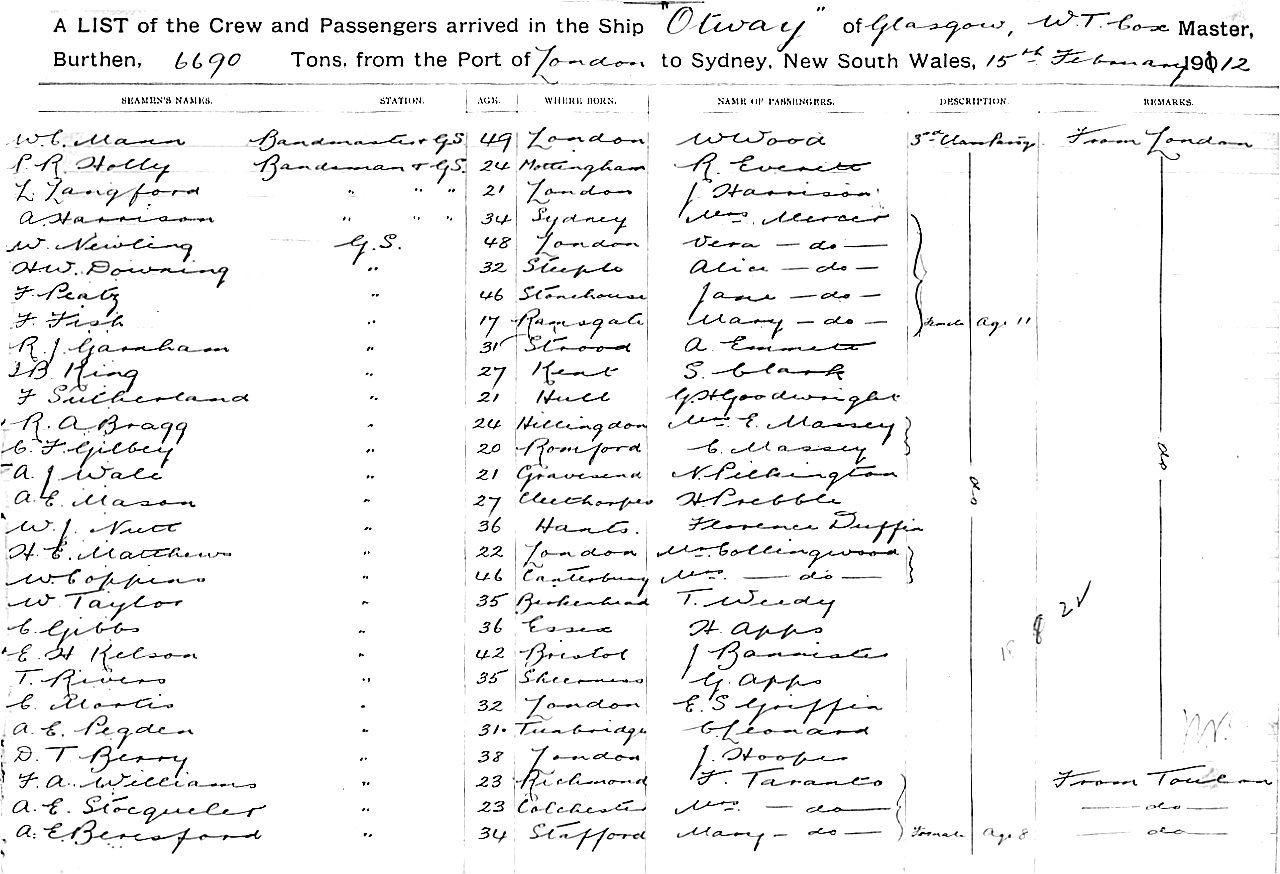 A LIST of the Crew and Passengers arrived in the Ship "Otway" of Glasgow, W.T. Cox Master,
Burthen, 6690 Tons, from the Port of London to Sydney, New South Wales, 15th February 1912
SEAMEN'S NAMES. STATION. AGE. WHERE BORN. NAME OF PASSENGERS. DESCRIPTION. REMARKS.
W. C. Mann Bandmaster & G.S. 49 London W Wood 3rd Class From London
P. R. Holly Bandsman & G.S. 24 Nottingham R. Everett
L. Langford " " " 21 London J Harrison
A. Harrison " " " 34 Sydney Mrs. Mercer
W. Newling G.S. 48 London Vera — do —
H.W. Downing " 32 Steeple Alice — do —
F. " 46 Stonehouse Jane — do —
F. Fish " 17 Ramsgate Mary — do — Female Age 11
R J Garnham " 31 Strood A Emmett
King " 27 Kent S. Clark
F Sutherland " 21 Hull G H Goodwright
R. A Bragg " 24 Hillingdon Mrs E. Massey
C. F. Gilbey " 20 Romford C. Massey
A. J Wale " 21 Gravesend N. Pilkington do
A. E. Mason " 27 Cleethorpes H Prebble do
W. J. Nutt " 36 Hants. Florence Duffin
H. E. Matthews " 22 London Mr Collingwood
W. Coppins " 46 Canterbury Mrs. — do —
W. Taylor " 35 Birkenhead T. Weedy
C. Gibbs " 36 Essex H. Apps
E. H Kelson " 42 Bristol J Bannister
T. Rivers " 35 Sheerness G. Apps
C. Martis " 32 London E. S Griffin
A. E. Pegden " 31 Tunbridge C Leonard
D. T Berry " 38 London J. Hooper
F. A. Williams " 23 Richmond F. Taranto From Toulon
A. E. Stocqueler " 23 Colchester Mrs. — do — — do —
A. E Beresford " 34 Stafford Mary — do — Female Age 8 — do —